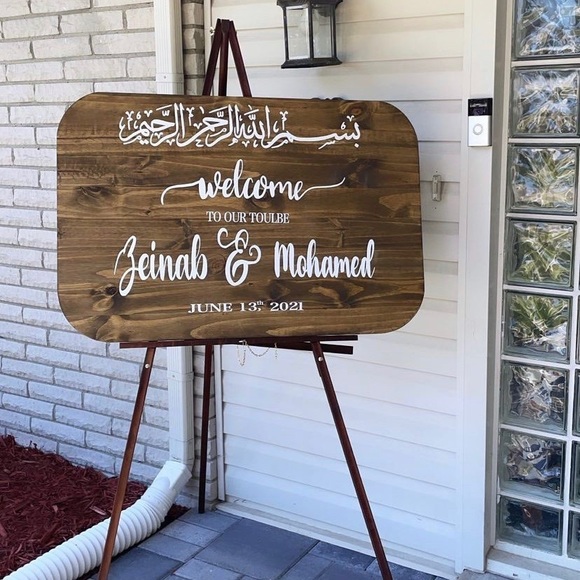 بسم الله الرحمن الرحيم
welcome
TO OUR TOULBE
Zeinab & Mohamed
JUNE 13th, 2021